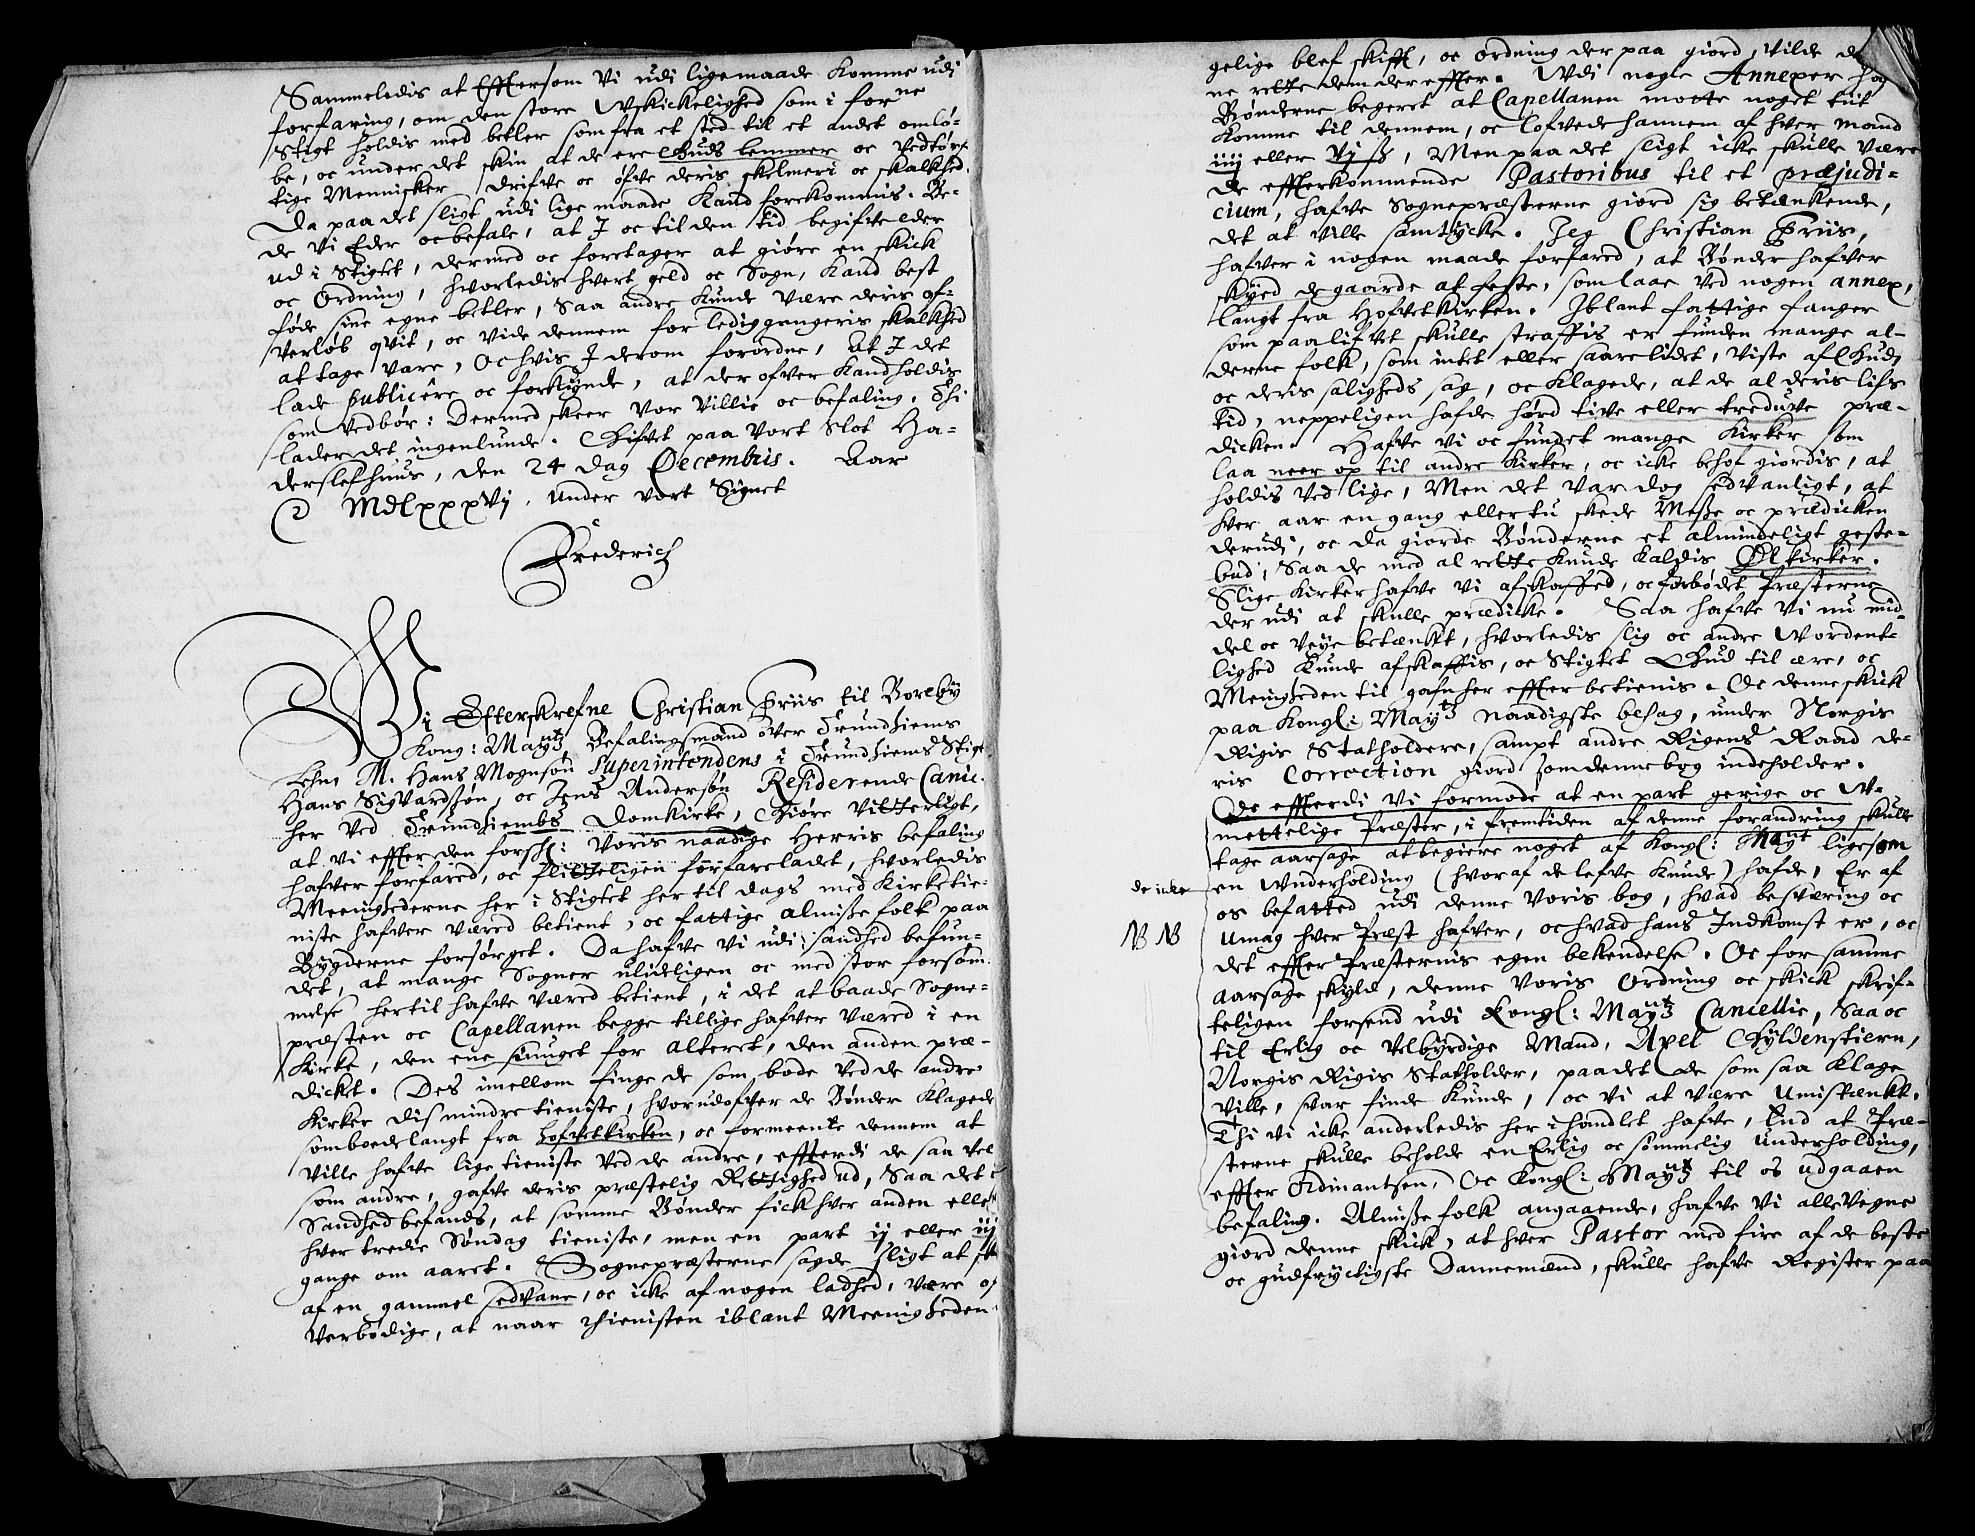 Sammeledis at Effttersom Vi udi ligemaade komme udi
forfaring, om den store Wskickelighed som i for^ne
Stigt holdis med betler som fra et sted til et andet omlø-
be, oc under det skin at de ere Guds lemmer oc Vedtørf-
tige Mennisker drifve oc øfve deris skelmeri oc skalkhed.
Da paa det sligt udi lige maade kand forekommis. Be-
de Vi Eder oc befale, at I oc til den tid begifve eder
ud i Stigtet, dermed oc foretager at giøre en skick
oc Ordning, hvorledis hvert geld oc Sogn, kand best
føde sine egne betler, Saa andre kunde være deris of-
verløb qvit, oc vide dennem for lediggengeris skalkhed
at tage vare, Oc hvis I derom forordne, At I det
lade publicêre oc forkÿnde, at der ofver kand holdis
som vedbør: Dermed skeer Vor Villie oc befaling. Thi
lader det ingenlunde. Gifvet paa Vort Slot Ha-
derslefhuus, den 24 dag Decembris. Aar
MDLxxxVj. under vort Signet
Frederich
Wi Efterskrefne Christian Friis til Borebÿ
Kong: May^tz Befalingsmand over Trundhiems
Lehn, M. Hans Mognsøn Superintendens i Trundhiems Stigt
Hans Sigvardssøn, oc Jens Andersøn Residerende Canic.
her ved Trundhiembs Domkirke, Giøre vitterligt,
at vi effter den forsch: Voris naadige Herris befaling
hafver forfared, oc flitteligen forfare ladet, hvorledis
Meenighederne her i Stigtet her til dags med Kirketie-
niste hafver væred betient, oc fattige almisse folk paa
Bÿgderne forsørget. Da hafve vi udi sandhed befun-
det, at mange Sogner ulideligen oc med stor forsøm-
melse her til hafve væred betient, i det at baade Sogne-
præsten oc Capellanen begge tillige hafver været i en
Kirke, den ene siunget for Alteret, den anden præ-
dicket. Des imellom finge de som bode ved de andre
Kirker dis mindre tieniste, hvorudofver de Bønder klagede
som boede langt fra Hofvetkirken, oc formeente dennem at
ville hafve lige tieniste ved de andre, effterdi de saa vel
som andre, gafve deris præstelig Rettighed ud, Saa det i
Sandhed befands, at somme Bønder fick hver anden eller
hver tredie Søndag tieniste, men en part ij eller iij
gange om aaret. Sognepræsterne sagde sligt at ske
af en gammel sedvane, oc icke af nogen ladhed, være of
verbødige, at naar thienisten iblant Meenigheden
gelige blef skifft, oc ordning der paa giord, Vilde de
ne rette dem dereffter. Udi nogle Annexer hos
Bønderne begeret at Capellanen motte noget tiit
komme til dennem, oc lofvede hannem af hver mand
iiij eller Vj ß, Men paa det sligt icke skulle være
de effterkommende Pastoribus til et præjudi-
cium, hafve Sognepræsterne giord sig betænkende,
det at ville samtÿcke. Jeg Christian Friis,
hafver i nogen maade forfared, at Bønder hafver
skÿed de gaarde at feste, som laae ved nogen annex,
langt fra Hofvetkirken. Iblant fattige fanger
som paa lifvet skulle straffis er funden mange al-
derne folk, som intet eller saare lidet, viste af Guds
oc deris saligheds sag, oc klagede, at de al deris lifs
tid, neppeligen hafde hørd tive eller treduve præ-
dicken. Hafve vi oc fundet mange Kirker som
laa neer op til andre Kirker, oc icke behof giordis, at
holdis ved lige, Men det var dog sedvanligt, at
hver aar en gang eller tu skede Messe oc prædicken
derudi, oc da giorde Bønderne et almindeligt geste-
bud, Saa de med al rette kunde kaldis Ølkirker.
Slige Kirker hafve vi afskaffed, oc forbødet Præsterne
der udi at skulle prædicke. Saa hafve vi nu mid-
del oc veÿe betænkt, hvorledis slig oc andre Wordent-
lighed kunde afskaffis, oc Stigtet Gud til ære, oc
Menigheden til gafn her effter betienis. Oc denne skick
paa Kongl: May^tz naadigste behag, under Norgis
Rigis Statholdere, sampt andre Rigens Raad de-
ris Correction giord som denne bog indeholder.
Oc effterdi vi formode at en part gerige oc W-
mettelige Præster, i fremtiden af denne forandring skulle
tage aarsage at begiere noget af Kongl: May^t ligesom
de icke
en Wnderholding (hvoraf de lefve kunde) hafde, Er af
os befatted udi denne Voris bog, hvad besværing oc
NB NB
umag hver Præst hafver, oc hvad hans Indkomst er, oc
det effter Præsternis egen bekendelse. Oc for samme
aarsage skÿld, denne Voris Ordning oc skick skrif-
teligen forsend udi Kongl: May^tz Cancellie, Saa oc
til Erlig oc Velbÿrdige Mand, Axel Gÿldenstiern,
Norgis Rigis Statholder, paa det de som saa klage
ville, svar finde kunde, oc vi at være umistænkt.
Thi vi icke anderledis her i handlet hafve, End at Præ-
sterne skulle beholde en Erlig oc sømmelig underholding,
effter Ordinantzen, Oc Kongl: May^tz til os udgaaen
befaling. Almisse folk angaaende, hafve vi alle vegne
giord denne skick, at hver Pastor med fire af de beste
oc gudfrÿctigste Dannemænd, skulle hafve Register paa